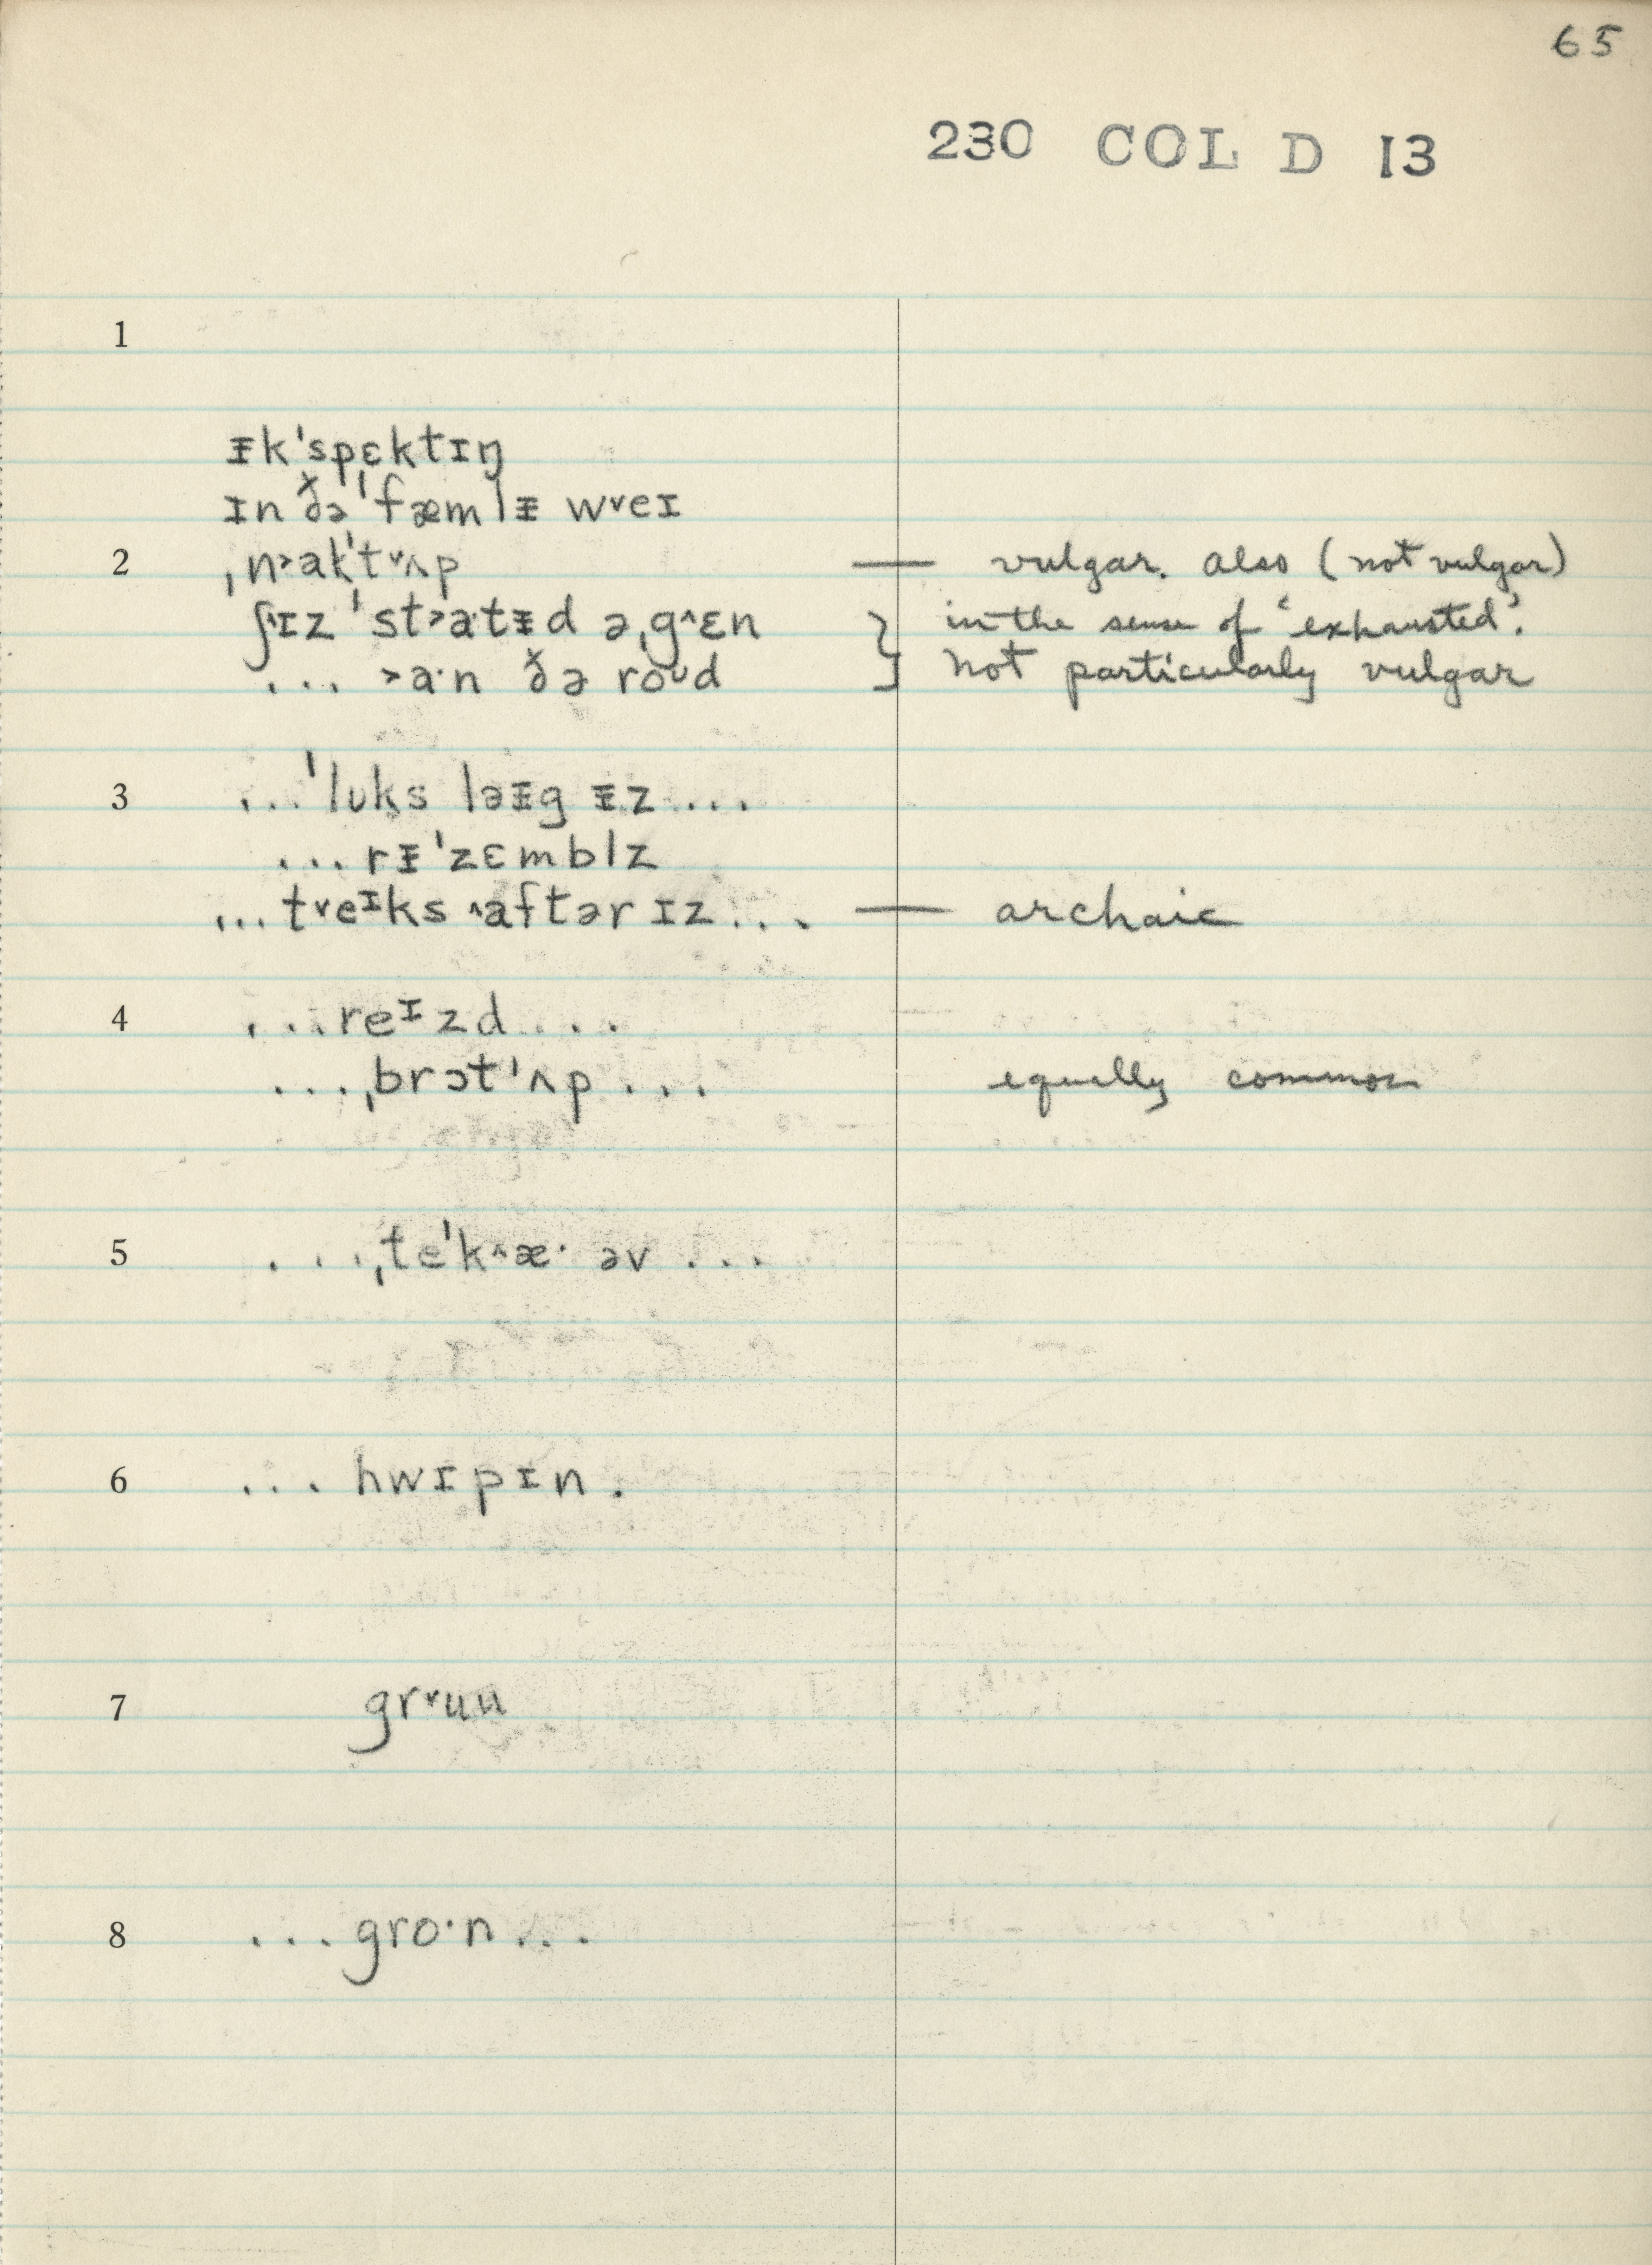 65
230 COL D 13
1
ᵻk'spɛktɪŋ
ɪn ðə 'fæmlᵻ w˅eɪ
2 ˌn˃ak't˅ʌp — vulgar. also (not vulgar)
ʃ˄ɪz 'st˃a·tᵻd əˌg˄ɛn } in the sense of 'exhausted'.
... ˃a·n ðə roᴜd ] not particularly vulgar
3 ...'lᴜksləᵻg ᵻz ...
... rᵻ'zɛmblz
... t˅eᶦks ˄aftər ɪz ... — archaic
4 ... reᶦzd ...
... ˌbrɔt'ʌp ... equally common
5 ... ˌte'k˄æ· əv ...
6 ... hwɪpɪn .
7 gr˅uu
8 ... gro·n ...